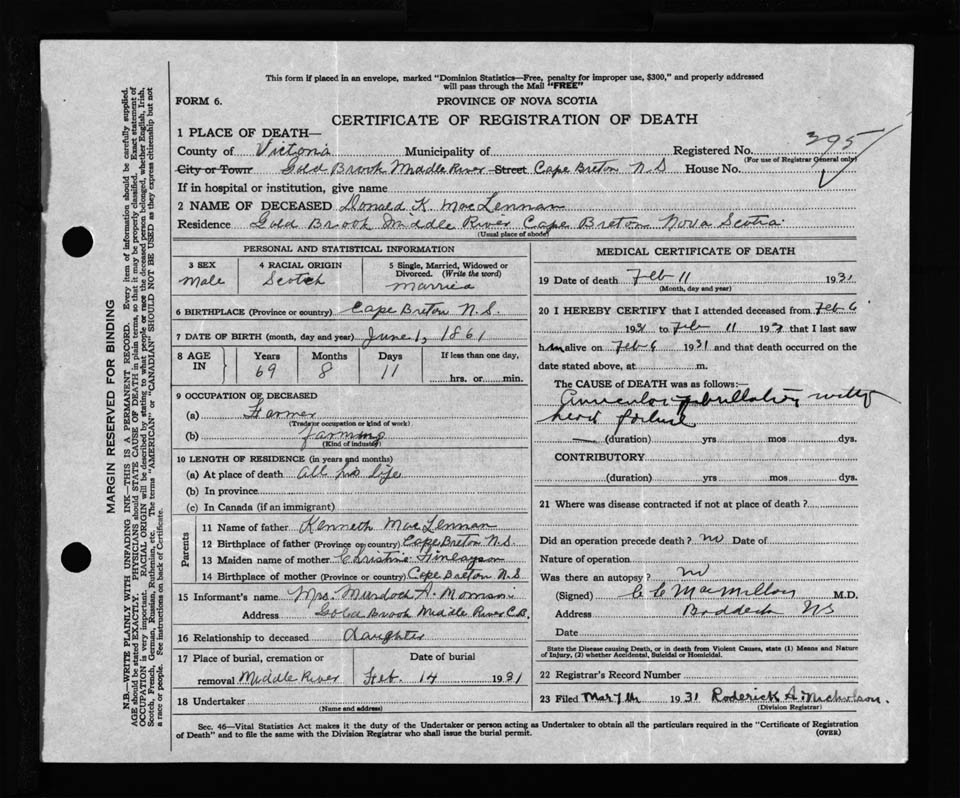 This form if placed in an envelope, marked "Dominion Statistics—Free, penalty for improper use, $300," and properly addressed
will pass through the Mail "FREE"
FORM 6.
PROVINCE OF NOVA SCOTIA
CERTIFICATE OF REGISTRATION OF DEATH
395
1 PLACE OF DEATH—
County of Victoria Municipality of Registered No.
(For use of Registrar General only)
City or Town Gold Brook Middle River Street Cape Breton N S House No.
If in hospital or institution, give name
2 NAME OF DECEASED Donald K. MacLennan
Residence Gold Brook Middle River Cape Breton Nova Scotia
(Usual place of abode)
PERSONAL AND STATISTICAL INFORMATION
3 SEX 4 RACIAL ORIGIN 5 Single, Married, Widowed or
Divorced. (Write the word)
Male Scotch Married
6 BIRTHPLACE (Province or country) Cape Breton N.S.
7 DATE OF BIRTH (month, day and year) June 1, 1861
8 AGE IN Years Months Days If less than one day,
69 8 11 hrs. or min.
9 OCCUPATION OF DECEASED
(a) Farmer
(Trade or occupation or kind of work)
(b) farming
(Kind of industry)
10 LENGTH OF RESIDENCE (in years and months)
(a) At place of death All his life
(b) In province
(c) In Canada (if an immigrant)
Parents
11 Name of father Kenneth MacLennan
12 Birthplace of father (Province or country) Cape Breton N.S.
13 Maiden name of mother Christina Finlayson
14 Birthplace of mother (Province or country) Cape Breton N.S
15 Informant's name Mrs. Murdock A. Morrison
Address Gold Brook Middle River C.B.
16 Relationship to deceased daughter
17 Place of burial, cremation or Date of burial
removal Middle River Feb. 14 1931
18 Undertaker
(Name and address)
MEDICAL CERTIFICATE OF DEATH
19 Date of death Feb 11 1931
(Month, day and year)
20 I HEREBY CERTIFY that I attended deceased from Feb 6
1931 to Feb 11 193 that I last saw
him alive on Feb 6 1931 and that death occurred on the
date stated above, at m.
The CAUSE OF DEATH was as follows:
Auricular fibrillation with
heart failure
(duration) yrs mos dys.
CONTRIBUTORY
(duration) yrs. mos. dys.
21 Where was disease contracted if not at place of death?
Did an operation precede death? no Date of
Nature of operation
Was there an autopsy? no
(Signed) C L MacMillan M.D.
Address Baddeck NS
Date
State the Disease causing Death, or in death from Violent Causes, state (1) Means and Nature
of Injury, (2) whether Accidental, Suicidal or Homicidal.
22 Registrar's Record Number
23 Filed Mar 7th 1931 Roderick A. Nicholson.
(Division Registrar)
Sec. 46—Vital Statistics Act makes it the duty of the Undertaker or person acting as Undertaker to obtain all the particulars required in the "Certificate of Registration
of Death" and to file the same with the Division Registrar who shall issue the burial permit.
(OVER)
MARGIN RESERVED FOR BINDING
N.B.—WRITE PLAINLY WITH UNFADING INK—THIS IS A PERMANENT RECORD. Every item of information should be carefully supplied.
AGE should be stated EXACTLY. PHYSICIANS should STATE CAUSE OF DEATH in plain terms, so that it may be properly classified. Exact statement of
OCCUPATION is very important. RACIAL ORIGIN will be described by stating to what people or race the deceased person belonged, whether English, Irish,
Scotch, French, German, Russian, Ruthenian, etc. The terms "AMERICAN" or "CANADIAN" SHOULD NOT BE USED as they express citizenship but not
a race or people. See instructions on back of Certificate.